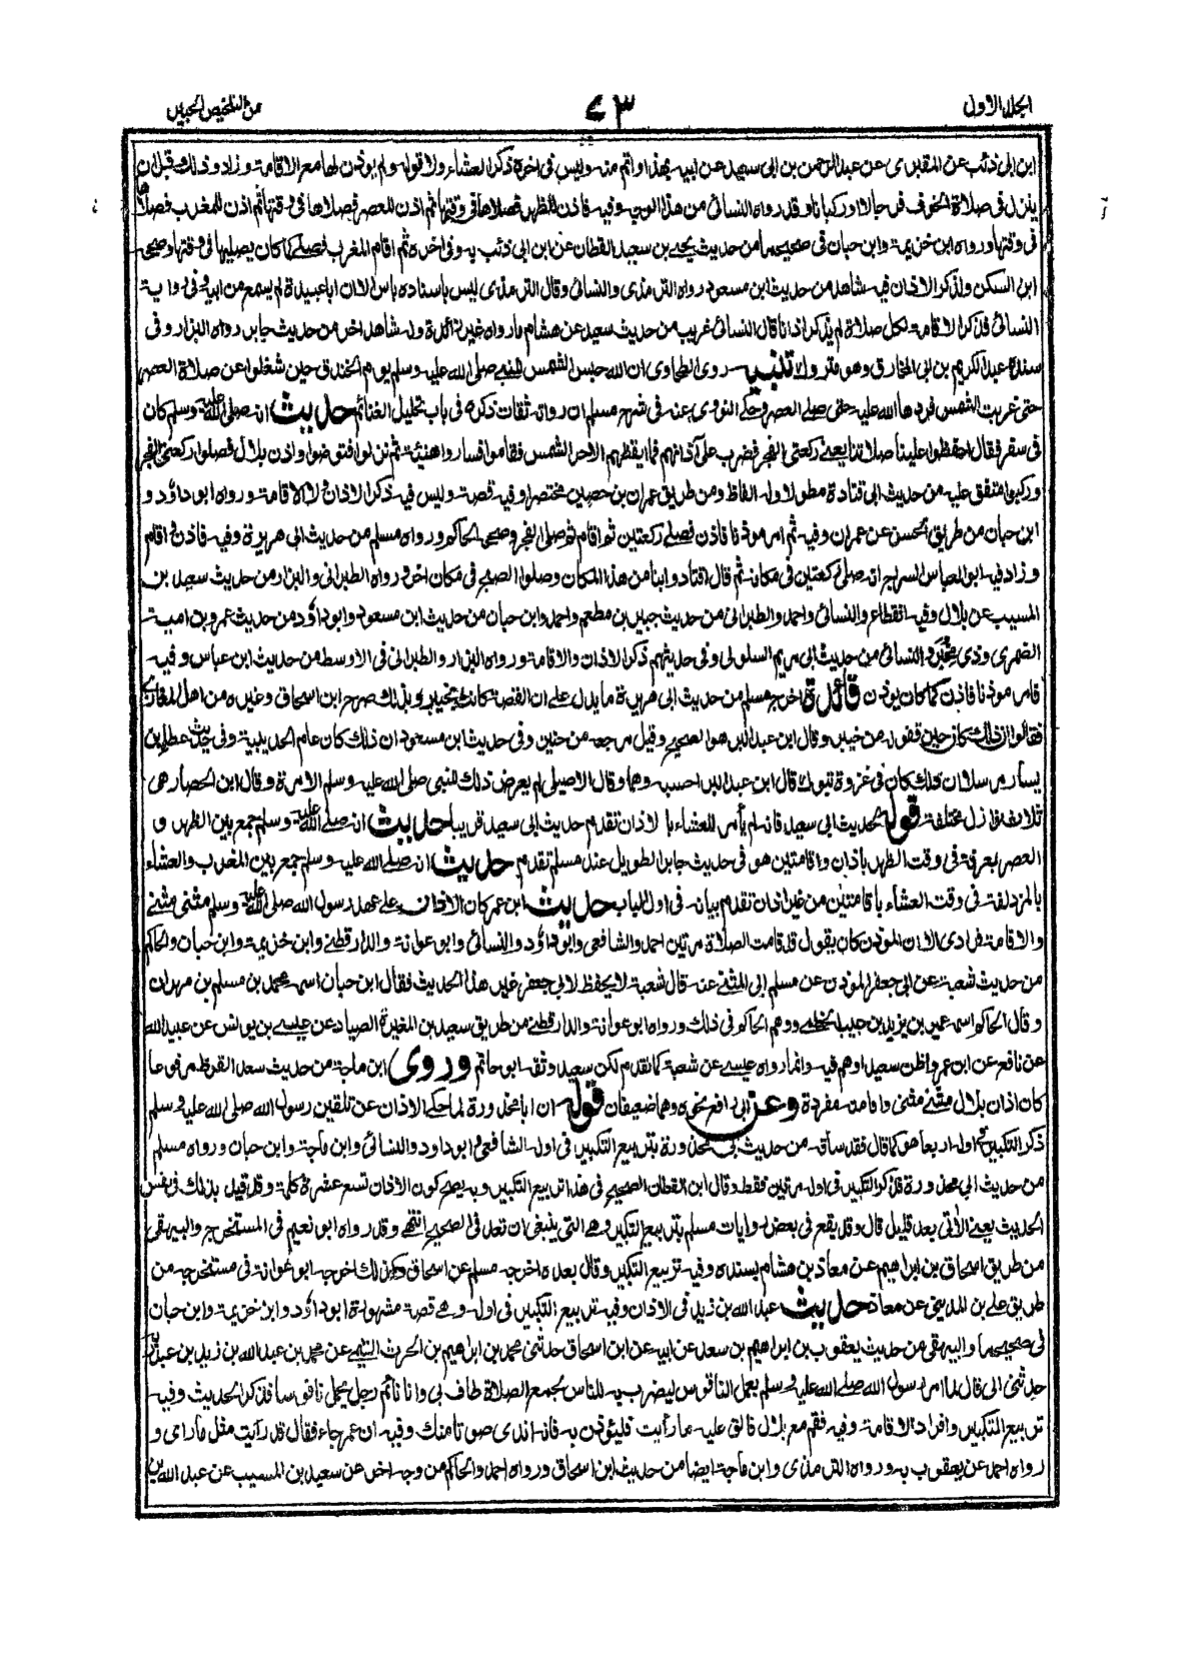 الجلد الاول ٧٣ من التلخيص الحبير
ابن ابى ذئب عن المقبرى عن عبد الرحمن بن ابى سعيد عن ابيه بهذا واتم منه وليس فى اخره ذكر العشاء ولا قوله ولم يوذن لها مع الاقامة وزاد وذلك قبل ان
ينزل فى صلاة الخوف فرجالا او ركبانا وقد رواه النسائى من هذا الوجه وفيه فاذن للظهر فصلاها فى وقتها ثم اذن للعصر فصلاها فى وقتها ثم اذن للمغرب فصلاها
فى وقتها ورواه ابن خزيمة وابن حبان فى صحيحيهما من حديث يحيے بن سعيد القطان عن ابن ابى ذئب به وفى اخره ثم اقام المغرب فصلے كما كان يصليها فى وقتها وصححه
ابن السكن ولذكر الاذان فيه شاهد من حديث ابن مسعود رواه الترمذى والنسائى وقال الترمذى ليس باسناده باس الا ان ابا عبيدة لم يسمع من ابيه وفى رواية
النسائى فذكر الاقامة لكل صلاة لم يذكر اذانا قال النسائى غريب من حديث سعيد عن هشام ما رواه غير زائدة وله شاهد اخر من حديث جابر رواه البزار وفى
سنده عبد الكريم بن ابى المخارق وهو متروك تنبيه روى الطحاوى ان الله حبس الشمس للنبے صلى الله عليه وسلم يوم الخندق حين شغلوا عن صلاة العصر
حتى غربت الشمس فردها الله عليه حتى صلے العصر وحكے النووى عنه فى شرح مسلم ان رواته ثقات ذكره فى باب تحليل الغنائم حديث انه صلى الله عليه وسلم كان
فى سفر فقال احفظوا علينا صلاتنا يعنے ركعتى الفجر فضرب على آذانهم فما ايقظهم الا حر الشمس فقاموا فساروا هنيئة ثم نزلوا فتوضوا واذن بلال فصلوا ركعتى الفجر
وركبوا متفق عليه من حديث ابى قتادة مطولا وله الفاظ ومن طريق عمران بن حصين مختصرا وفيه قصة وليس فيه ذكر الاذان ولا الاقامة ورواه ابو داؤد و
ابن حبان من طريق الحسن عن عمران وفيه ثم امر موذنا فاذن فصلے ركعتين ثم اقام ثم صلى الفجر وصححه الحاكم ورواه مسلم من حديث ابى هريرة وفيه فاذن واقام
وزاد فيه ابو العباس السراج انه صلى ركعتين فى مكانه ثم قال اقتادوا بنا من هذا المكان وصلوا الصبح فى مكان اخر ورواه الطبرانى والبزار من حديث سعيد بن
المسيب عن بلال وفيه انقطاع والنسائى واحمد والطبرانى من حديث جبير بن مطعم واحمد وابن حبان من حديث ابن مسعود وابو داؤد من حديث عمرو بن امية
الضمرى وذى مخبر والنسائى من حديث ابى مريم السلولى وفى حديثهم ذكر الاذان والاقامة ورواه البزار والطبرانى فى الاوسط من حديث ابن عباس وفيه
فامر موذنا فاذن كما كان يوذن فائدة اخرج مسلم من حديث ابى هريرة ما يدل علے ان القصة كانت بخيبر وبذلك صرح ابن اسحاق وغيره من اهل المغازى
فقالوا ان ذلك كان حين قفوله من خيبر وقال ابن عبد البر هو الصحيح وقيل مرجعه من حنين وفى حديث ابن مسعود ان ذلك كان عام الحديبية وفى حديث عطاء بن
يسار مرسلا ان ذلك كان فى غزوة تبوك قال ابن عبد البر احسبه وهما وقال الاصيلى لم يعرض ذلك للنبى صلى الله عليه وسلم الا مرة وقال ابن الحصار هى
ثلاث نوازل مختلفة قوله حديث ابى سعيد فانه لم يأمر للعشاء بالاذان تقدم حديث ابى سعيد قريبا حديث انه صلے الله عليه وسلم جمع بين الظهر و
العصر بعرفة فى وقت الظهر باذان واقامتين هو فى حديث جابر الطويل عند مسلم تقدم حديث انه صلے الله عليه وسلم جمع بين المغرب والعشاء
بالمزدلفة فى وقت العشاء باقامتين من غير اذان تقدم بيانه فى اول الباب حديث ابن عمر كان الاذان علے عهد رسول الله صلى الله عليه وسلم مثنى مثنے
والاقامة فرادى الا ان الموذن كان يقول قد قامت الصلاة مرتين احمد والشافعى وابو داؤد والنسائى وابو عوانة والدارقطنے وابن خزيمة وابن حبان والحاكم
من حديث شعبة عن ابى جعفر الموذن عن مسلم ابى المثنے عنه قال شعبة لا يحفظ لابى جعفر غير هذا الحديث فقال ابن حبان اسمه محمد بن مسلم بن مهران
وقال الحاكم اسمه عمير بن يزيد بن حبيب الخطمے ووهم الحاكم فى ذلك ورواه ابو عوانة والدارقطنے من طريق سعيد بن المغيرة الصياد عن عيسے بن يونس عن عبيد الله
عن نافع عن ابن عمر واظن سعيدا وهم فيه وانما رواه عيسے عن شعبة كما تقدم لكن سعيد وثقه ابو حاتم وروى ابن ماجة من حديث سعد القرظ مرفوعا
كان اذان بلال مثنے مثنى واقامته مفردة وعن ابى رافع نحوه وهما ضعيفان قوله ان ابا محذورة لما حكے الاذان عن تلقين رسول الله صلى الله عليه وسلم
ذكر التكبير فى اوله اربعا هو كما قال فقد ساقه من حديث ابى محذورة بتربيع التكبير فى اوله الشافعى وابو داود والنسائى وابن ماجة وابن حبان ورواه مسلم
من حديث ابى محذورة فذكر التكبير فى اوله مرتين فقط وقال ابن القطان الصحيح فى هذا تربيع التكبير وبه يصح كون الاذان تسع عشرة كلمة وقد قيل بذلك فى نفس
الحديث يعنے الآتى بعد قليل قال وقد يقع فى بعض روايات مسلم بتربيع التكبير وهے التى ينبغى ان تعد فى الصحيح انتهے وقد رواه ابو نعيم فى المستخرج والبيهقى
من طريق اسحاق بن ابراهيم عن معاذ بن هشام بسنده وفيه تربيع التكبير وقال بعده اخرجه مسلم عن اسحاق وكذلك اخرجه ابو عوانة فى مستخرجه من
طريق علے بن المدينى عن معاذ حديث عبد الله بن زيد فى الاذان وفيه تربيع التكبير فى اوله وهے قصة مشهورة ابو داؤد وابن خزيمة وابن حبان
فى صحيحيهما والبيهقى من حديث يعقوب بن ابراهيم بن سعد عن ابيه عن ابن اسحاق حدثنى محمد بن ابراهيم بن الحرث التيمے عن محمد بن عبد الله بن زيد بن عبد ربه
حدثنى ابى قال لما امر رسول الله صلى الله عليه وسلم بعمل الناقوس ليضرب به للناس لجمع الصلاة طاف بى وانا نائم رجل يحمل ناقوسا فذكر الحديث وفيه
تربيع التكبير وافراد الاقامة وفيه فقم مع بلال فالق عليه ما رأيت فليؤذن به فانه اندى صوتا منك وفيه ان عمر جاء فقال قد رآيت مثل ما راى و
رواه احمد عن يعقوب به ورواه الترمذى وابن ماجة ايضا من حديث ابن اسحاق ورواه احمد والحاكم من وجه اخر عن سعيد بن المسيب عن عبد الله بن